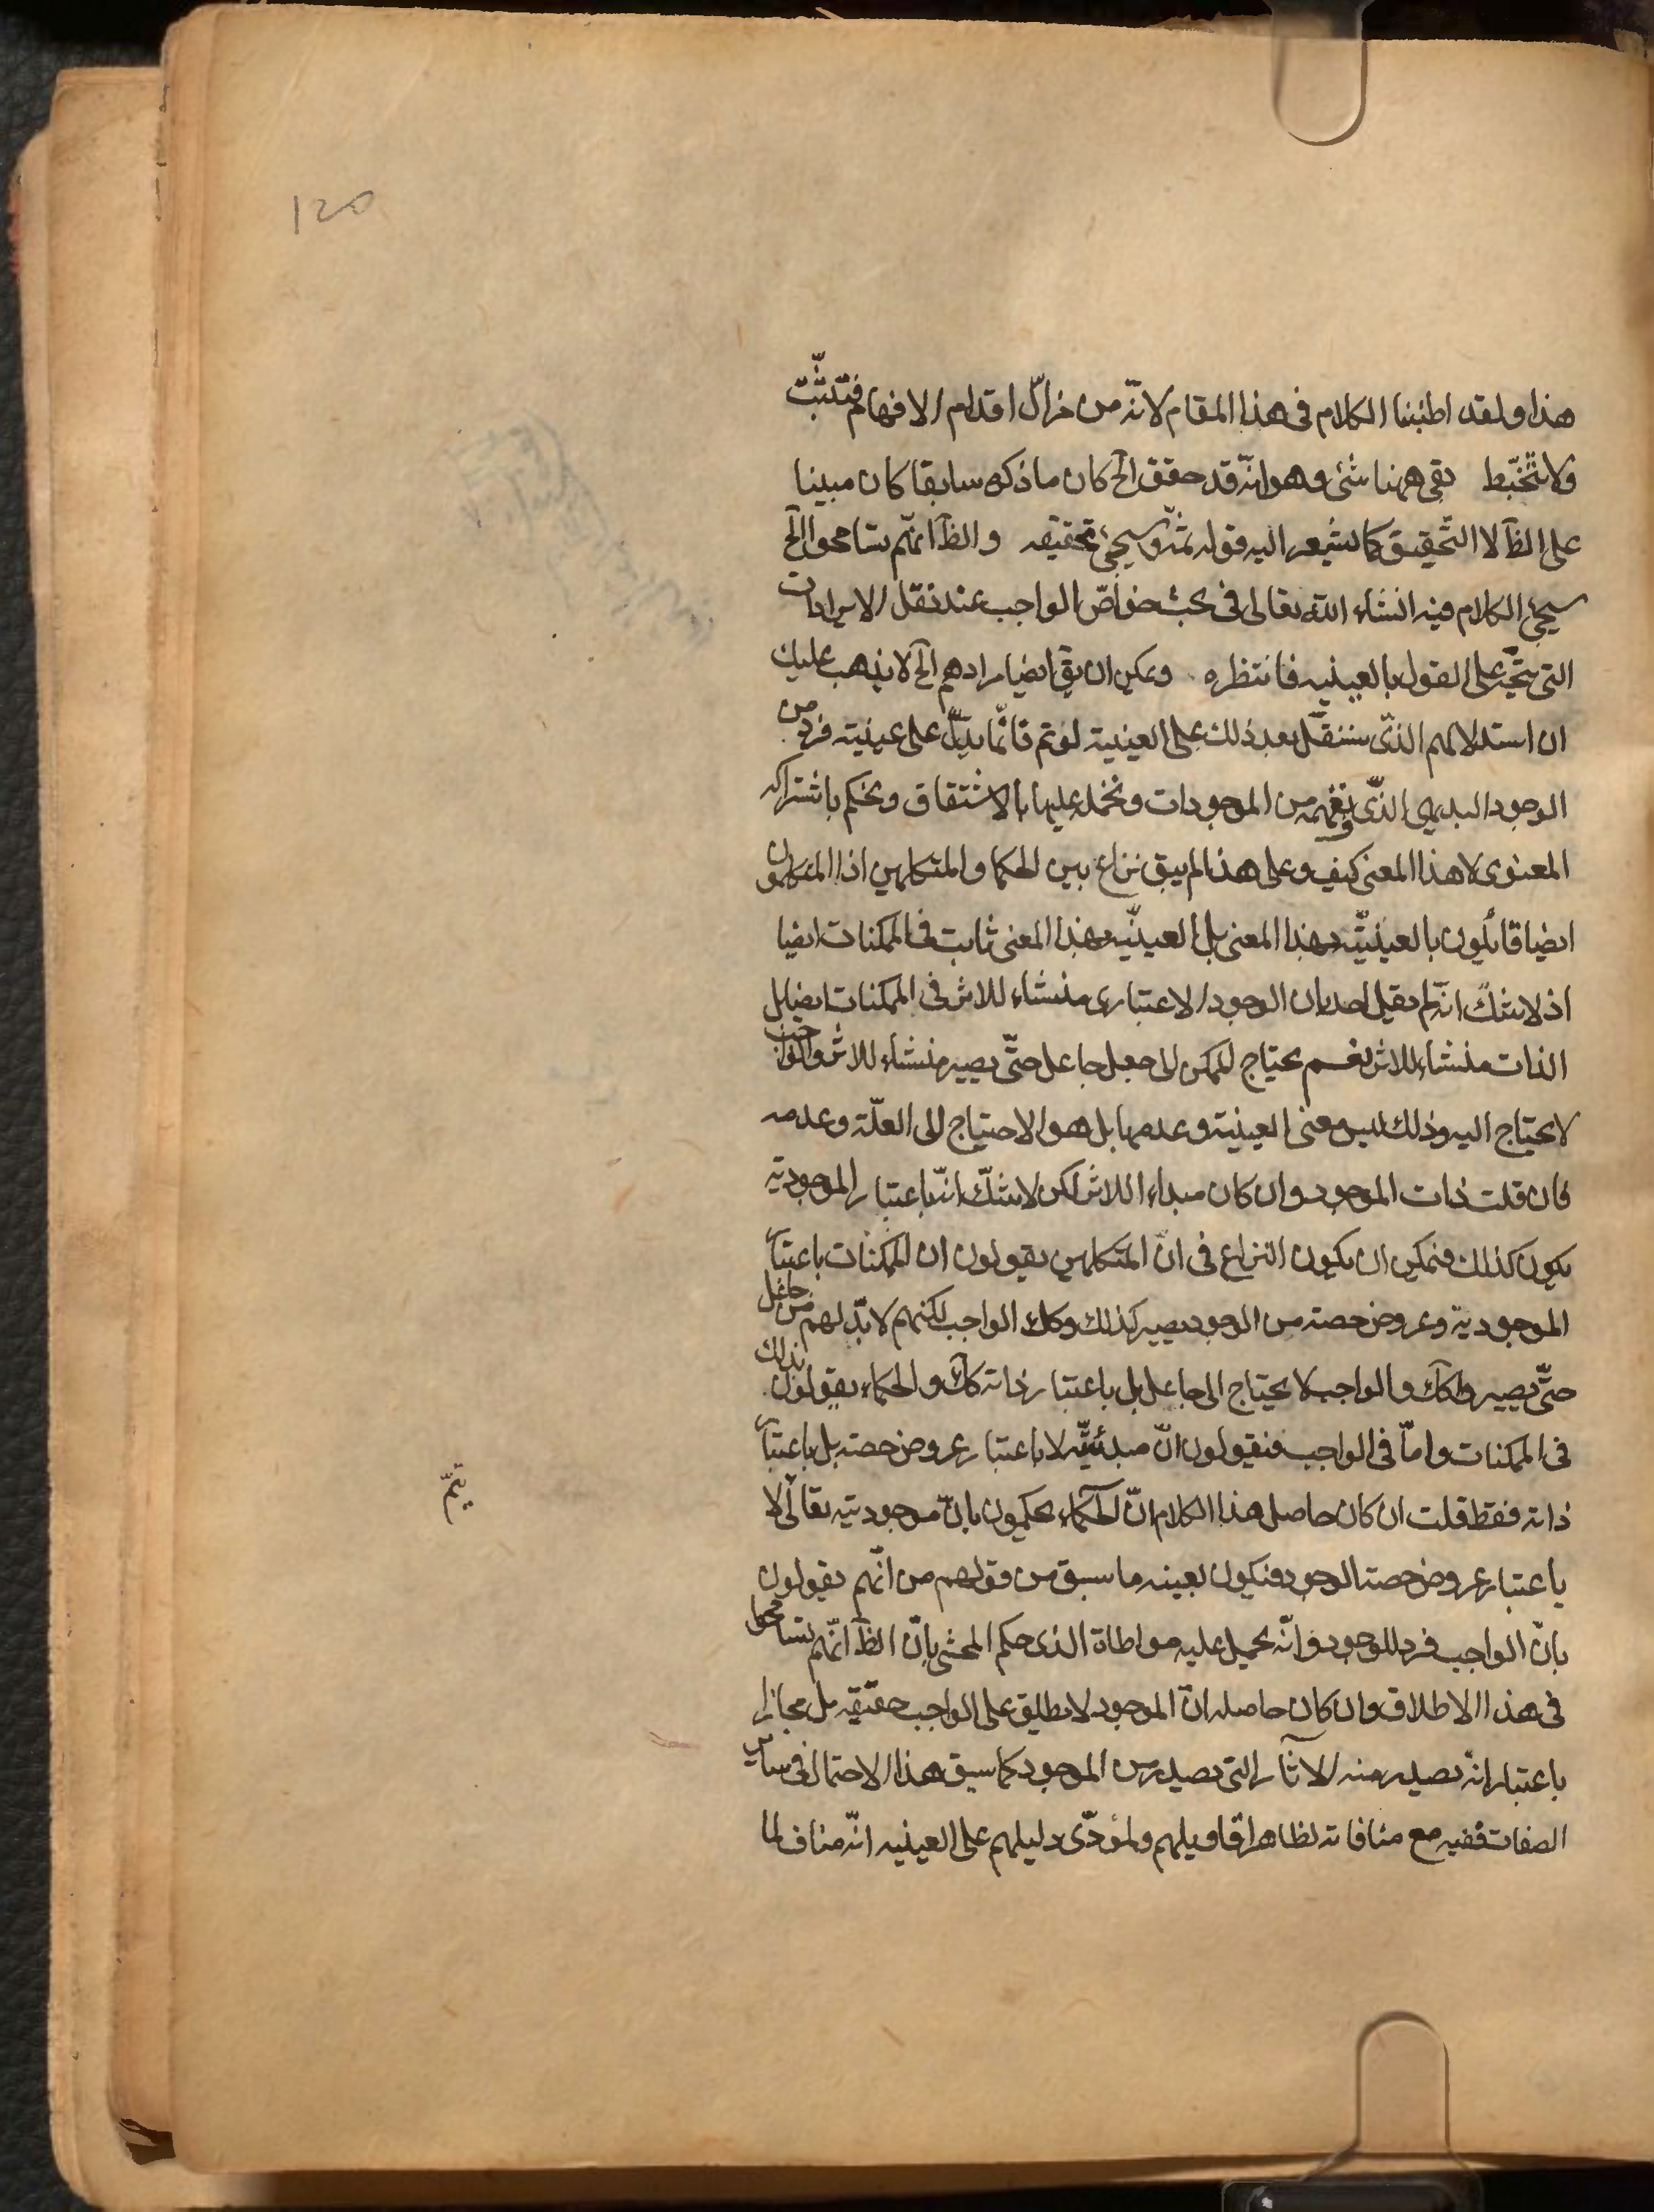 120
هذا ولقد اطنبنا الكلام فى هذا المقام لانّه من مزالّ اقدام الافهام فتثبّت
ولا تتخبّط بقى ههنا شئ وهو انّه قد حقق الخ كان ما ذكره سابقا كان مبينا
على الظ لا التّحقيق كما يشعر اليه قوله ثمّه وسيجئ تحقيقه والظ انّهم تسامحوا الخ
سيجئ الكلام فيه انشاء الله تعالى فى بحث خواصّ الواجب عند نقل الايرادات
التى يتّجه على القول بالعينيه فانتظره ويمكن ان يق ايضا مرادهم الخ لا يذهب عليك
ان استدلالهم الذّى سننقل بعد ذلك على العينية لو تم فانّما يدلّ على عينية فرد من
الوجود البديهى الذّى نفهمه من الموجودات ونحمله عليها بالاشتقاق ونحكم باشتراكه
المعنوى لا هذا المعنى كيف وعلى هذا لم يبق نزاع بين الحكما والمتكلمين اذ المتكلمون
ايضا قائلون بالعينيّة بهذا المعنى بل العينيّة بهذا المعنى ثابت فى الممكنات ايضا
اذ لا شكّ انّه لم يقل احد بان الوجود الاعتبارى منشاء للاثر فى الممكنات ايضا بل
الذات منشاء للاثر نعم يحتاج الممكن الى جعل جاعل حتّى يصير منشاء للاثر والواجب
لا يحتاج اليه وذلك ليس معنى العينية وعدمها بل هو الاحتياج الى العلّة وعدمه
فان قلت ذات الموجود وان كان مبداء للاثر لكن لا شكّ انّه باعتبار الموجودية
يكون كذلك فيمكن ان يكون النزاع فى انّ المتكلمين يقولون ان الممكنات باعتبار
الموجودية وعروض حصة من الوجود يصير كذلك وكك الواجب لكنهم لا بدّ لهم من جاعل
حتّى يصيروا كك والواجب لا يحتاج الى جاعل بل باعتبار ذاته كك والحكماء يقولون بذلك
فى الممكنات وامّا فى الواجب فيقولون انّ مبدئيّته لا باعتبار عروض حصة بل باعتبار
ذاته فقط قلت ان كان حاصل هذا الكلام انّ الحكماء يحكمون بانّ موجوديته تعالى لا
باعتبار عروض حصة الوجود فيكون بعينه ما سبق من قولهم من انّهم يقولون
بانّ الواجب فرد للوجود وانّه يحمل عليه مواطاة الذى حكم المحشى بانّ الظ انّهم تسامحوا
فى هذا الاطلاق وان كان حاصله انّ الموجود لا يطلق على الواجب حقيقه بل مجازا
باعتبار انّه يصدر منه الآثار التى تصدر من الموجود كما سبق هذا الاحتمال فى ساير
الصفات ففيه مع منافاته لظاهر اقاويلهم ولمؤدّى دليلهم على العينيه انّه مناف لما